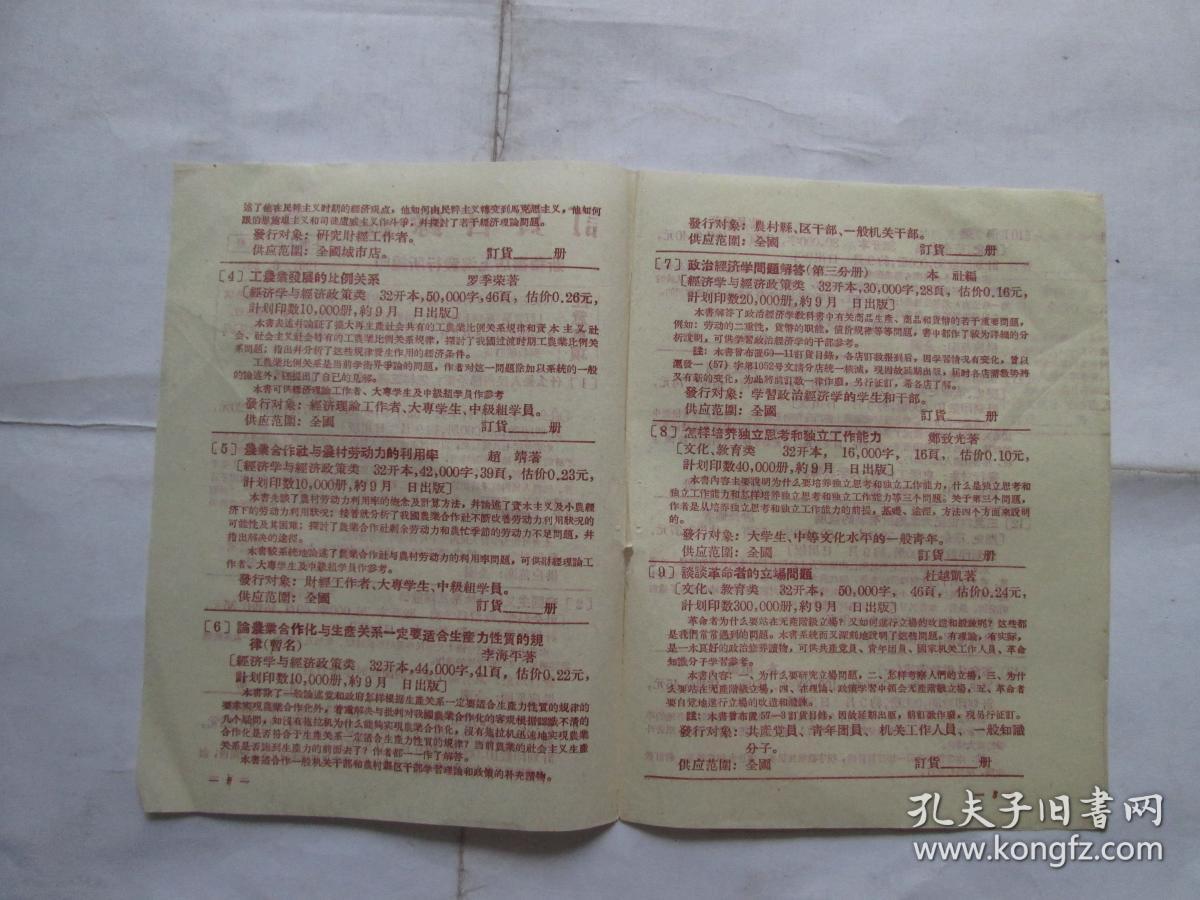 述了他在民粹主义时期的經济观点，他如何由民粹主义轉变到馬克思主义，他如何
跟伯恩施坦主义和司徒盧威主义作斗爭，幷探討了若干經济理論問題。
發行对象：研究財經工作者。
供应范圍：全國城市店。 訂貨____册
〔4〕工農業發展的比例关系 罗季荣著
〔經济学与經济政策类 32开本,50,000字,46頁，估价0.26元，
計划印数10,000册,約9月 日出版〕
本書表述幷論証了擴大再生產社会共有的工農業比例关系規律和資本主义社
会、社会主义社会特有的工農業比例关系規律，探討了我國过渡时期工農業比例关
系問題；指出幷分析了这些規律發生作用的經济条件。
工農業比例关系是当前学術界爭論的問題，作者对这一問題除加以系統的一般
的論述外，还提出了自己的見解。
本書可供經济理論工作者、大專学生及中級組学員作参考
發行对象：經济理論工作者、大專学生、中級組学員。
供应范圍：全國 訂貨____册
〔5〕農業合作社与農村劳动力的利用率 趙 靖著
〔經济学与經济政策类 32开本,42,000字,39頁，估价0.23元，
計划印数10,000册,約9月 日出版〕
本書先談了農村劳动力利用率的概念及計算方法，幷論述了資本主义及小農經
济下的劳动力利用狀况；接着就分析了我國農業合作社不断改善劳动力利用狀况的
可能性及其困难；探討了農業合作社剩余劳动力和農忙季節的劳动力不足問題，幷
指出解决的途徑。
本書較系統地論述了農業合作社与農村劳动力的利用率問題，可供財經理論工
作者、大專学生及中級組学員作参考。
發行对象：財經工作者、大專学生、中級組学員。
供应范圍：全國 訂貨____册
〔6〕論農業合作化与生產关系一定要适合生產力性質的規
律(暫名) 李海平著
〔經济学与經济政策类 32开本,44,000字,41頁，估价0.22元，
計划印数10,000册,約9月 日出版〕
本書除了一般論述党和政府怎样根据生產关系一定要适合生產力性質的規律的
要求实現農業合作化外，着重解决与批判对我國農業合作化的客观根据認識不清的
几个疑問，如沒有拖拉机为什么能夠实現農業合作化，沒有拖拉机迅速地实現農業
合作化是否符合于生產关系一定适合生產力性質的規律？当前農業的社会主义生產
关系是否跑到生產力的前面去了？作者都一一作了解答。
本書适合作一般机关干部和農村縣区干部学習理論和政策的补充讀物。
發行对象：農村縣、区干部、一般机关干部。
供应范圍：全國 訂貨____册
〔7〕政治經济学問題解答(第三分册) 本 社編
〔經济学与經济政策类 32开本,30,000字,28頁，估价0.16元，
計划印数20,000册，約9月 日出版〕
本書解答了政治經济学教科書中有关商品生產、商品和貨幣的若干重要問題，
例如：劳动的二重性，貨幣的职能，價价規律等等問題，書中都作了較为詳細的分
析說明，可供学習政治經济学的干部参考。
註：本書曾布置60—11訂貨目錄，各店訂数报到后，因学習情况有变化，曾以
滬發一(57)字第1052号文請分店統一核减，現因故延期出版，屆时各店需数势將
又有新的变化，为此將前訂数一律作廢，另行征訂，希各店了解。
發行对象：学習政治經济学的学生和干部。
供应范圍：全國 訂貨____册
〔8〕怎样培养独立思考和独立工作能力 鄭致光著
〔文化、教育类 32开本， 16,000字， 16頁，估价0.10元，
計划印数40,000册，約9月 日出版〕
本書內容主要說明为什么要培养独立思考和独立工作能力，什么是独立思考和
独立工作能力和怎样培养独立思考和独立工作能力等三个問題。关于第三个問題，
作者是从培养独立思考和独立工作能力的前提，基礎、途徑，方法四个方面來說明
的。
發行对象：大学生、中等文化水平的一般青年。
供应范圍：全國 訂貨____册
〔9〕談談革命者的立場問題 杜越凱著
〔文化、教育类 32开本， 50,000字， 46頁，估价0.24元，
計划印数300,000册，約9月 日出版〕
革命者为什么要站在无產階級立場？又如何進行立場的改造和鍛鍊呢？这些都
是我們常常遇到的問題。本書系統而又深刻地說明了这些問題。有理論，有实际，
是一本良好的政治修养讀物，可供共產党員、青年团員、國家机关工作人員、革命
知識分子学習参考。
本書內容：一、为什么要研究立場問題，二、怎样考察人們的立場，三、为什
么要站在无產階級立場，四、在理論、政策学習中領会无產階級立場，五、革命者
要自覚地進行立場的改造和鍛鍊。
註：本書曾布置57—3訂貨目錄，因故延期出版，前訂数作廢，現另行征訂。
發行对象：共產党員、青年团員、机关工作人員、一般知識
分子。
供应范圍：全國 訂貨____册
孔夫子旧书网
www.kongfz.com